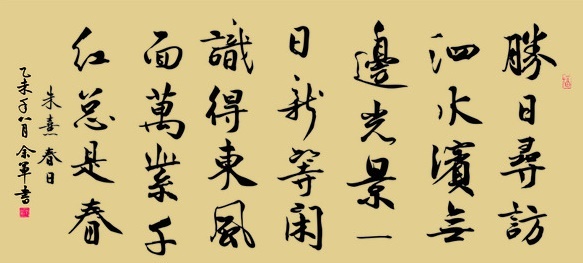 勝日尋訪
泗水濱無
邊光景一
日新等閑
識得東風
面萬紫千
紅总是春
朱熹春日
乙未年八月余軍書